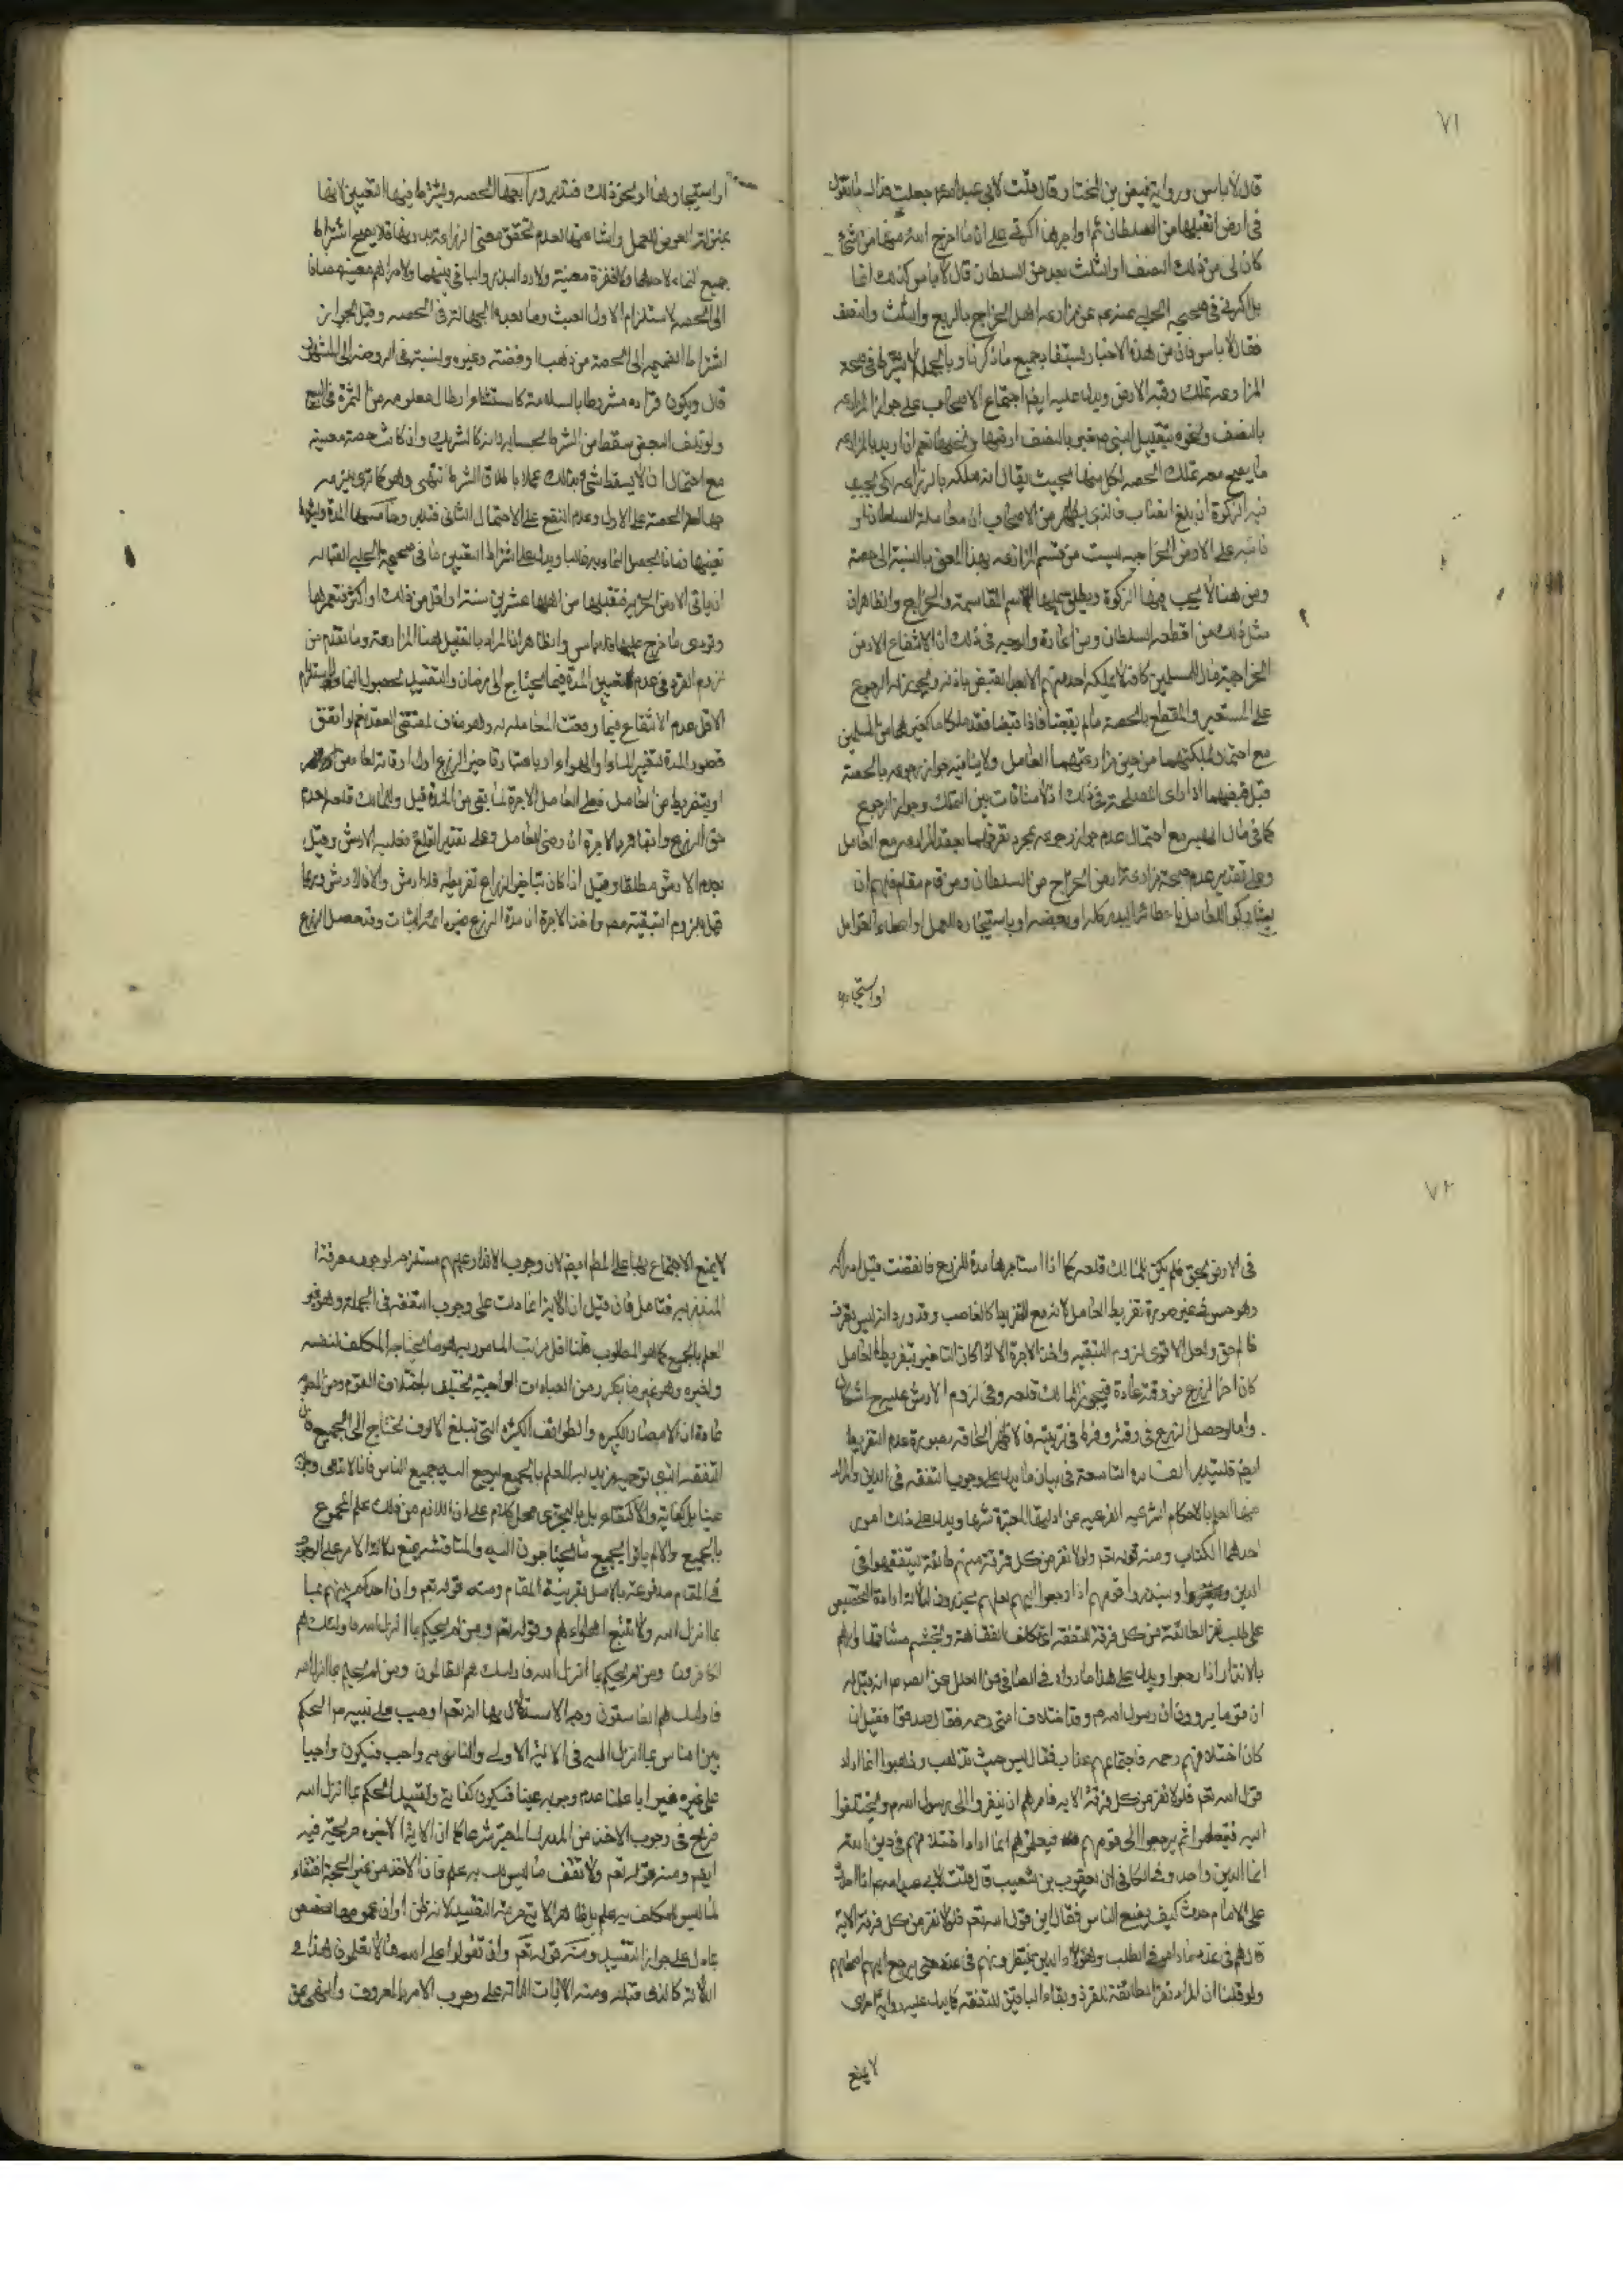 ٧١
قال لا باس ورواية فيض بن المختار وقال قلت لابي عبد الله ع جعلت فداك ما تقول
في ارض اتقبلها من السلطان ثم اواجرها اكرتي على ان ما اخرج الله منها من شئ
كان لي من ذلك النصف او الثلث بعد حق السلطان قال لا باس كذلك
في صحيحة الحلبي عن مزارعة اهل الخراج بالربع والثلث والنصف
فقال لا باس فان من هذه الاخبار يستفاد جميع ما ذكرنا وبالجملة لا يشترط في صحة
المزارعة تملك رقبة الارض ويدل عليه ايضا اجتماع الاصحاب على جواز المزارعة
بالنصف ونحوه
ما يصح معه تملك الحصة لكل منهما بحيث يقال انه ملكه بالزراعة لكي يجب
فيه الزكوة ان بلغ النصاب فالذي يظهر من الاصحاب ان معاملة السلطان او
نائبه على الارض الخراجية ليست من قسم المزارعة بهذا المعنى بالنسبة الى حصة
ومن هنا لا يجب فيها الزكوة ويطلق عليها اسم المقاسمة والخراج والظاهر ان
مثل ذلك من اقطعه السلطان ومن اعاره والوجه في ذلك ان الانتفاع الارض
الخراجية مال المسلمين كافة لا يملكه احد منهم الا بعد القبض باذنه ويجوز له الرجوع
على المستعير والمقطع بالحصة ما لم يقبضا فاذا قبضا فقد ملكا كغيرهما من المسلمين
مع احتمال ملكيتهما من حين مزارعتهما العامل ولا ينافيه جواز رجوعه بالحصة
قبل قبضهما اذا راى المصلحة في ذلك اذ لا منافات بين التملك وجواز الرجوع
كما في مال الهبة مع احتمال عدم جواز رجوعه بمجرد تصرفهما بعقد المزارعة مع العامل
وعلى تقدير عدم صحة مزارعة ارض الخراج من السلطان ومن قام مقامه فلهم ان
يشاركوا العامل باعطائه البذر كله او بعضه او باستيجاره للعمل او اعطاء العوامل
او استيجارها
او استيجارها او نحو ذلك فتدبر ورابعها الحصة ويشترط فيها التعيين لانها
بمنزلة العوض للعمل واشاعتها لعدم تحقق معنى المزارعة بدونها فلا يصح اشتراط
جميع النماء لاحدهما ولا اقفزة معينة ولا رد البذر والباقي بينهما ولا دراهم معينة مضافا
الى الحصة لاستلزام الاول العبث وما بعده الجهالة في الحصة وقيل بجواز
اشتراط الضميمة الى الحصة من ذهب او فضة وغيره ونسبه في الروضة الى المشهور
قال ويكون قراره مشروطا بالسلامة كاستثناء ارطال معلومة من الثمرة في البيع
ولو تلف البعض سقط من الشرط بحسابه لانه كالشريك وان كانت حصته معينة
مع احتمال ان لا يسقط شئ بذلك عملا باطلاق الشرط انتهى وهو كما ترى
جهالة الحصة على الاول وعدم النفع على الاحتمال الثاني فتدبر وخامسها المدة
تعيينها زمانا يحصل النماء فيه غالبا ويدل على اشتراط التعيين ما في صحيحة الحلبي القبالة
ان ياتي الارض الخربة فيتقبلها من اهلها عشرين سنة او اقل من ذلك او اكثر فيعمرها
ويؤدي ما خرج عليها فلا باس والظاهر ان المراد بالتقبيل هنا المزارعة وما تقدم من
لزوم الغرر في عدم تعيين المدة فيما يحتاج الى زمان والتقييد بحصول النماء
الاقل عدم الانتفاع فيما وقعت المعاملة له وهو مناف لمقتضى العقد نعم لو اتفق
قصور المدة لتغير الماء او الهواء او باعتبار تاخير الزرع اول اوقاته
او بتفريط من العامل فعلى العامل الاجرة لما بقي من المدة قيل وللمالك قلعه لعدم
حق الزرع وابقائه بالاجرة ان رضى العامل وعلى تقدير القلع فعليه الارش وقيل
بعدم الارش مطلقا وقيل اذا كان بتاخير الزراع تفريطه فلا ارش والا فالارش وربما
قيل بلزوم التبقية واخذ الاجرة ان مدة الزرع وقد حصل الزرع
٧٢
في الارض بحق فلم يكن للمالك قلعه كما اذا استاجرها مدة للزرع فانقضت قبل ادراكه
وهو حسن في غير صورة تفريط العامل لانه مع التفريط كالغاصب وقد ورد انه ليس لعرق
ظالم حق ولعل الاقوى لزوم التبقية واخذ الاجرة الا اذا كان التاخير بتفريط العامل
كان اخر الزرع من وقته عادة فيجوز للمالك قلعه وفي لزوم الارش عليه ح اشكال
واما لو حصل الزرع في وقته وفرط في تربيته فالاظهر الحاقه بصورة عدم التفريط
ايضا فليتدبر الفائدة التاسعة في بيان ما يدل على وجوب التفقه في الدين والمراد
منها العلم بالاحكام الشرعية الفرعية عن ادلتها المعتبرة شرعا ويدل على ذلك امور
احدهما الكتاب ومنه قوله تعم ولولا نفر من كل فرقة منهم طائفة ليتفقهوا في
الدين ولينذروا قومهم اذا رجعوا اليهم لعلهم يحذرون
على طلب نفر الطائفة من كل فرقة للتفقه اي تكلف الفقاهة وتجشم مشاقها
بالانذار اذا رجعوا ويدل على هذا ما رواه في الصافي من العلل عن الصادق ع انه قيل له
ان قوما يروون ان رسول الله ص قال اختلاف امتي رحمة فقال صدقوا فقيل ان
كان اختلافهم رحمة فاجتماعهم عذاب فقال ليس حيث تذهب وذهبوا انما اراد
قول الله تعم فلولا نفر من كل فرقة الآية فامرهم ان ينفروا الى رسول الله ص ويختلفوا
اليه فيتعلموا ثم يرجعوا الى قومهم فيعلموهم انما اراد اختلافهم في دين الله
انما الدين واحد وفي الكافي عن يعقوب بن شعيب قال قلت لابي عبد الله ع اذا حدث
على الامام حدث كيف يصنع الناس فقال اين قول الله تعم فلولا نفر من كل فرقة الآية
قال هم في عذر ما داموا في الطلب وهؤلاء الذين ينتظرونهم في عذر حتى يرجع اليهم اصحابهم
ولو قلنا ان المراد نفر الطائفة للغزو وبقاء الباقين للتفقه كما يدل عليه رواية اخرى
لا يمنع
لا يمنع الاجتماع بها على المط ايضا لان وجوب الانذار عليهم مستلزم لوجوب معرفة
المنذر به فتامل فان قيل ان الآية انما دلت على وجوب التفقه في الجملة وهو غير
العلم بالجميع كما هو المطلوب قلنا اقل مراتب المامور به هو ما يحتاجه المكلف لنفسه
ولغيره وهو غير ما يتكرر من العبادات الواجبة يختلف باختلاف القوم ومن المعلوم
عادة ان الامصار الكبيرة والطوائف الكثيرة التي تبلغ الالوف تحتاج الى الجميع
التفقه الذي نوجبه نريد به العلم بالجميع ليرجع اليه جميع الناس فانا لا ندعي وجوبه
عينا بل كفاية والاكتفاء بالمتجزي محل كلام على ان اللازم من ذلك علم المجموع
بالجميع والا لم ياتوا بجميع ما يحتاجون اليه والمناقشة بمنع دلالة الامر على الوجوب
في المقام مدفوعة بالاصل بقرينة المقام ومنه قوله تعم وان احكم بينهم بما
بما انزل الله ولا تتبع اهواءهم وقوله تعم ومن لم يحكم بما انزل الله فاولئك هم
الكافرون ومن لم يحكم بما انزل الله فاولئك هم الظالمون ومن لم يحكم بما انزل الله
فاولئك هم الفاسقون وجه الاستدلال بها انه تعم اوجب على نبيه ص الحكم
بين الناس بما انزل اليه في الآية الاولى والتاسي به واجب فيكون واجبا
على غيره غير انا علمنا عدم وجوبه عينا فيكون كفاية وتقييد الحكم بما انزل الله
صريح في وجوب الاخذ من المدرك المعتبر شرعا كما ان الآية الاخيرة صريحة فيه
ايضا ومنه قوله تعم ولا تقف ما ليس لك به علم فان الاخذ من غير الحجة اقتفاء
لما ليس للمكلف به علم بل ظاهر الآية حرمة التقليد لانه ظن اوان عمومها مخصص
بما دل على جواز التقليد ومنه قوله تعم وان تقولوا على الله ما لا تعلمون هذا في
الدلالة كالذي قبله ومنه الآيات الدالة على وجوب الامر بالمعروف والنهي عن